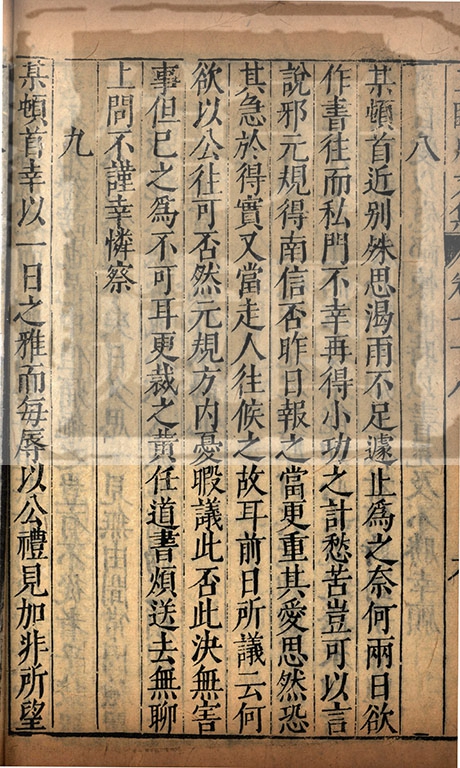 八
某頓首近别殊思渴雨不足遽止爲之奈何兩日欲
作書往而私門不幸再得小功之計愁苦豈可以言
說邪元規得南信否昨日報之當更重其愛思然恐
其急於得實又當走人往候之故耳前日所議云何
欲以公往可否然元規方内憂暇議此否此決無害
事但已之爲不可耳更裁之黄任道書煩送去無聊
上問不謹幸憐察
九
某頓首幸以一日之雅而每辱以公禮見加非所望